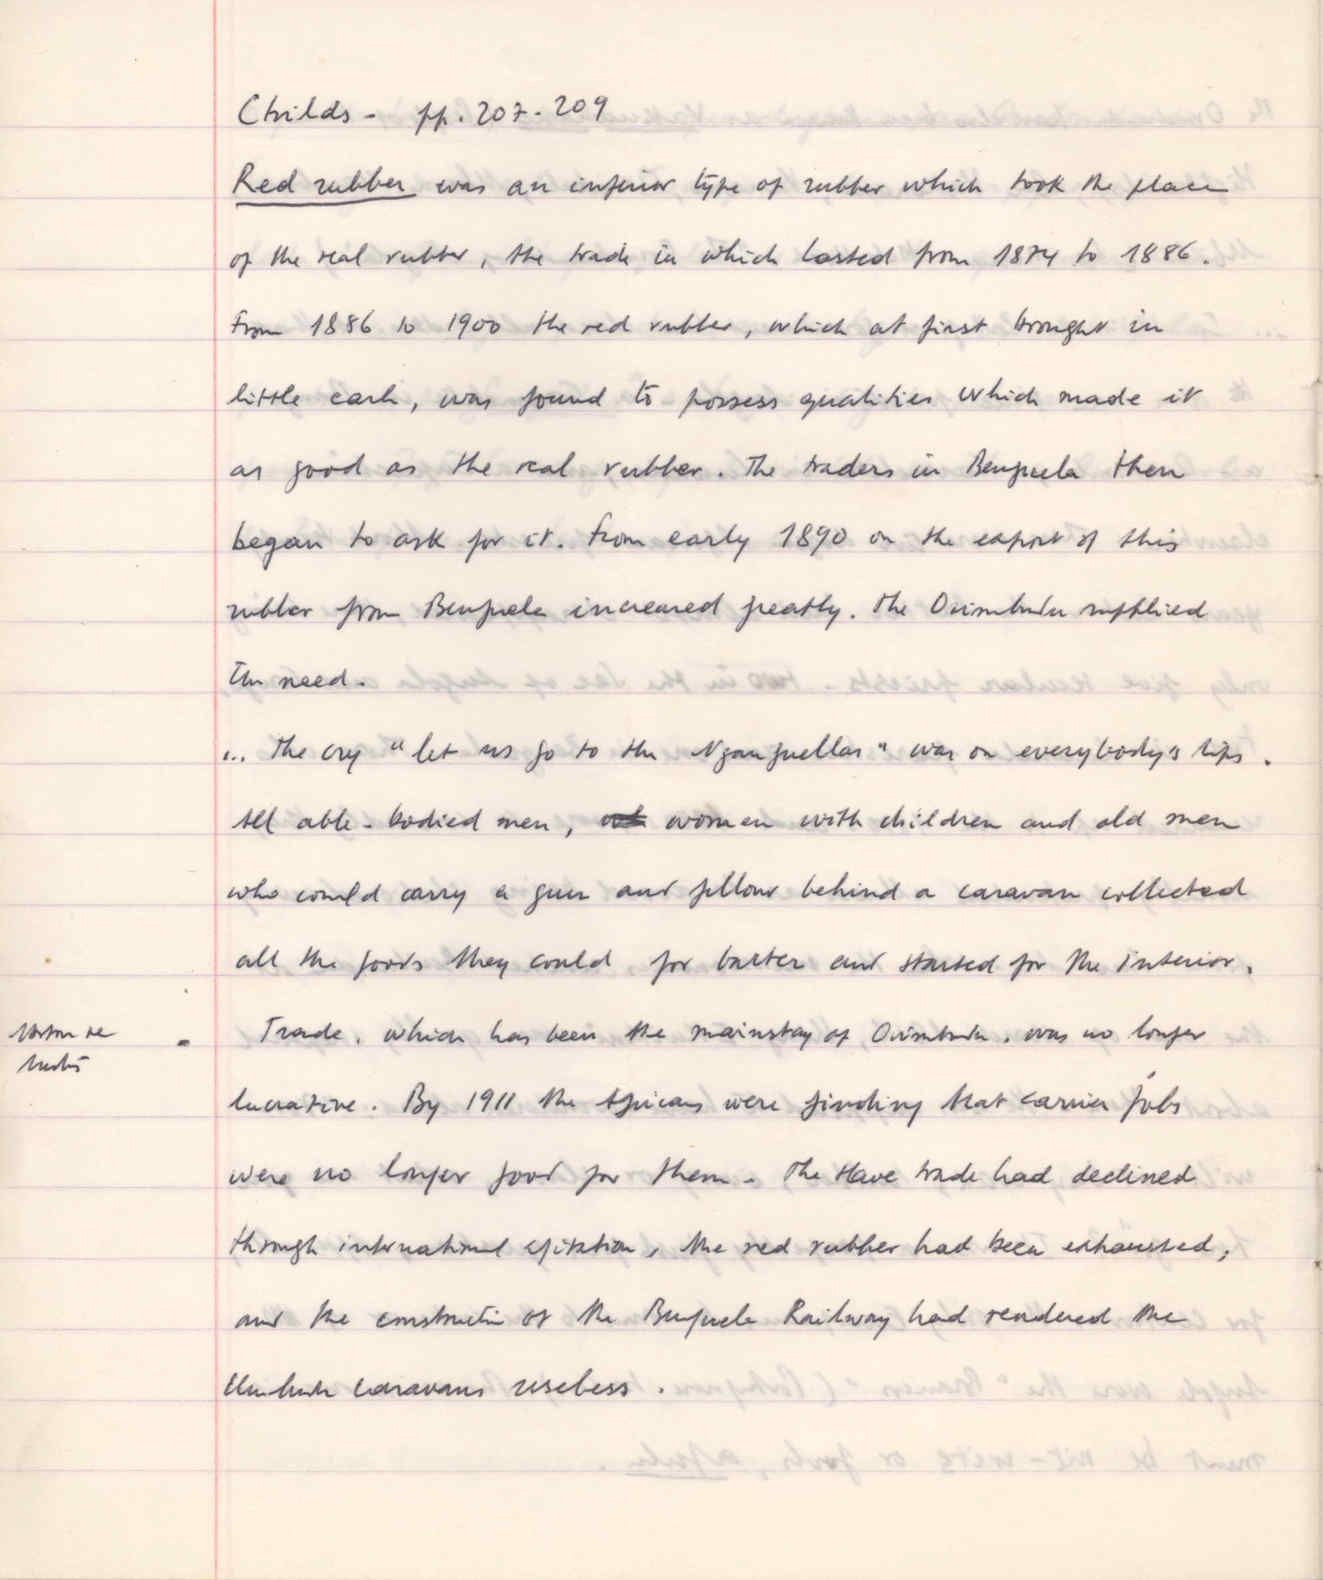 Childs - pp. 207-209
Red rubber was an inferior type of rubber which took the place
of the real rubber, the trade in which lasted from 1874 to 1886.
From 1886 to 1900 the red rubber, which at first brought in
little cash, was found to possess qualities which made it
as good as the real rubber. The traders in Benguela then
began to ask for it. From early 1890 on the export of this
rubber from Benguela increased greatly. The Ovimbundu supplied
the need.
... The cry "let us go to the Nganguellas" was on everybody's lips.
All able-bodied men, women with children and old men
who could carry a gun and follow behind a caravan collected
all the goods they could for barter and started for the interior.
Trade, which has been the mainstay of Ovimbundu, was no longer
lucrative. By 1911 the Africans were finding that carrier jobs
were no longer good for them. The slave trade had declined
through international agitation, the red rubber had been exhausted,
and the construction of the Benguela Railway had rendered the
Umbundu caravans useless.